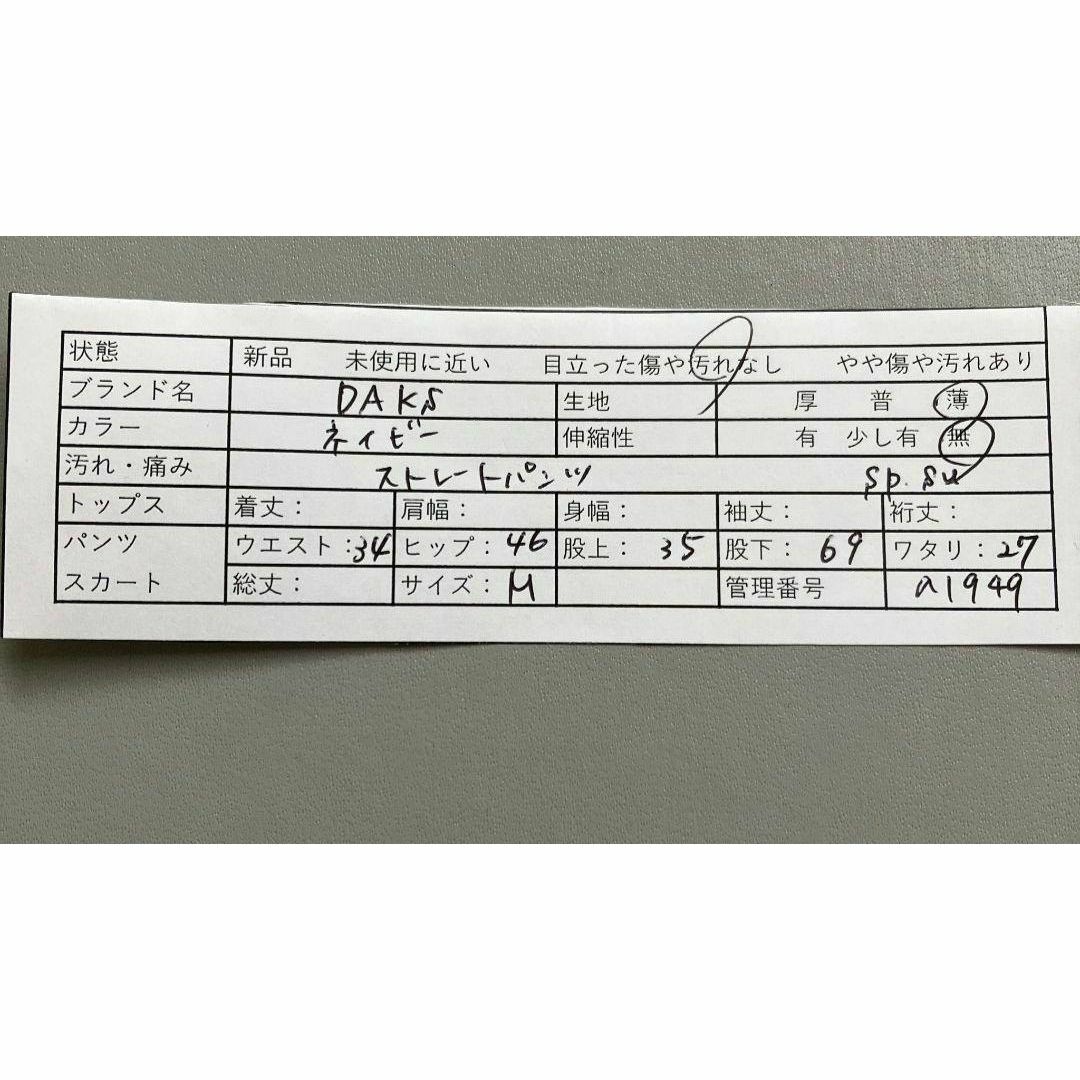 状態 新品 未使用に近い 目立った傷や汚れなし やや傷や汚れあり
ブランド名 DAKS 生地 厚 普 薄
カラー ネイビー 伸縮性 有 少し有 無
汚れ・痛み ストレートパンツ sp.su
トップス 着丈： 肩幅： 身幅： 袖丈： 裄丈：
パンツ ウエスト：34 ヒップ：46 股上：35 股下：69 ワタリ：27
スカート 総丈： サイズ：M 管理番号 a1949